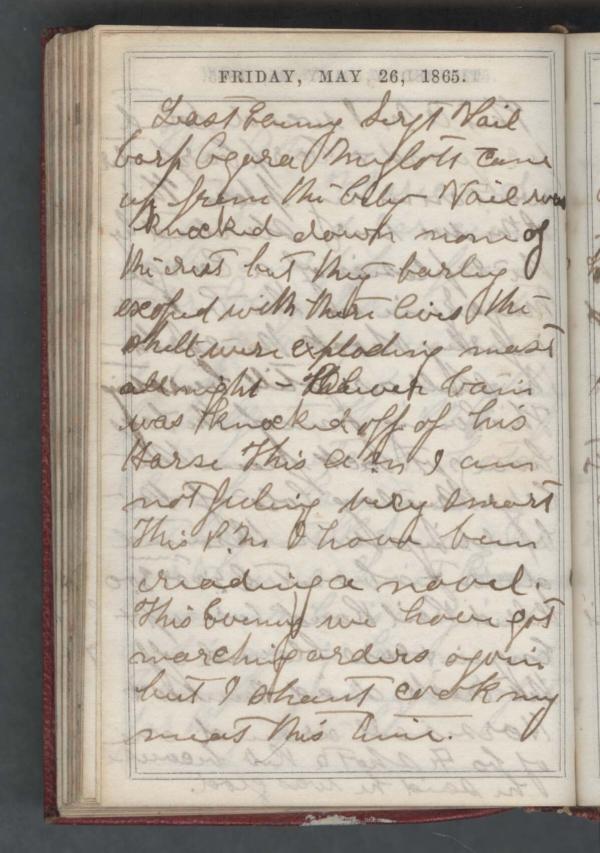 FRIDAY, MAY 26, 1865.
Last Evning Sergt Vail
Corp and Mylott came
up from the City Vail was
knocked down none of
the rest but they barley
excaped with there lives the
shell were exploding most
all night - Oliver Cain
was knocked off of his
Horse This a m I am
not feeling very smart
This P. M. I have been
reading a novel.
This Evning we have got
marching orders again
but I shant cook my
meat this time.